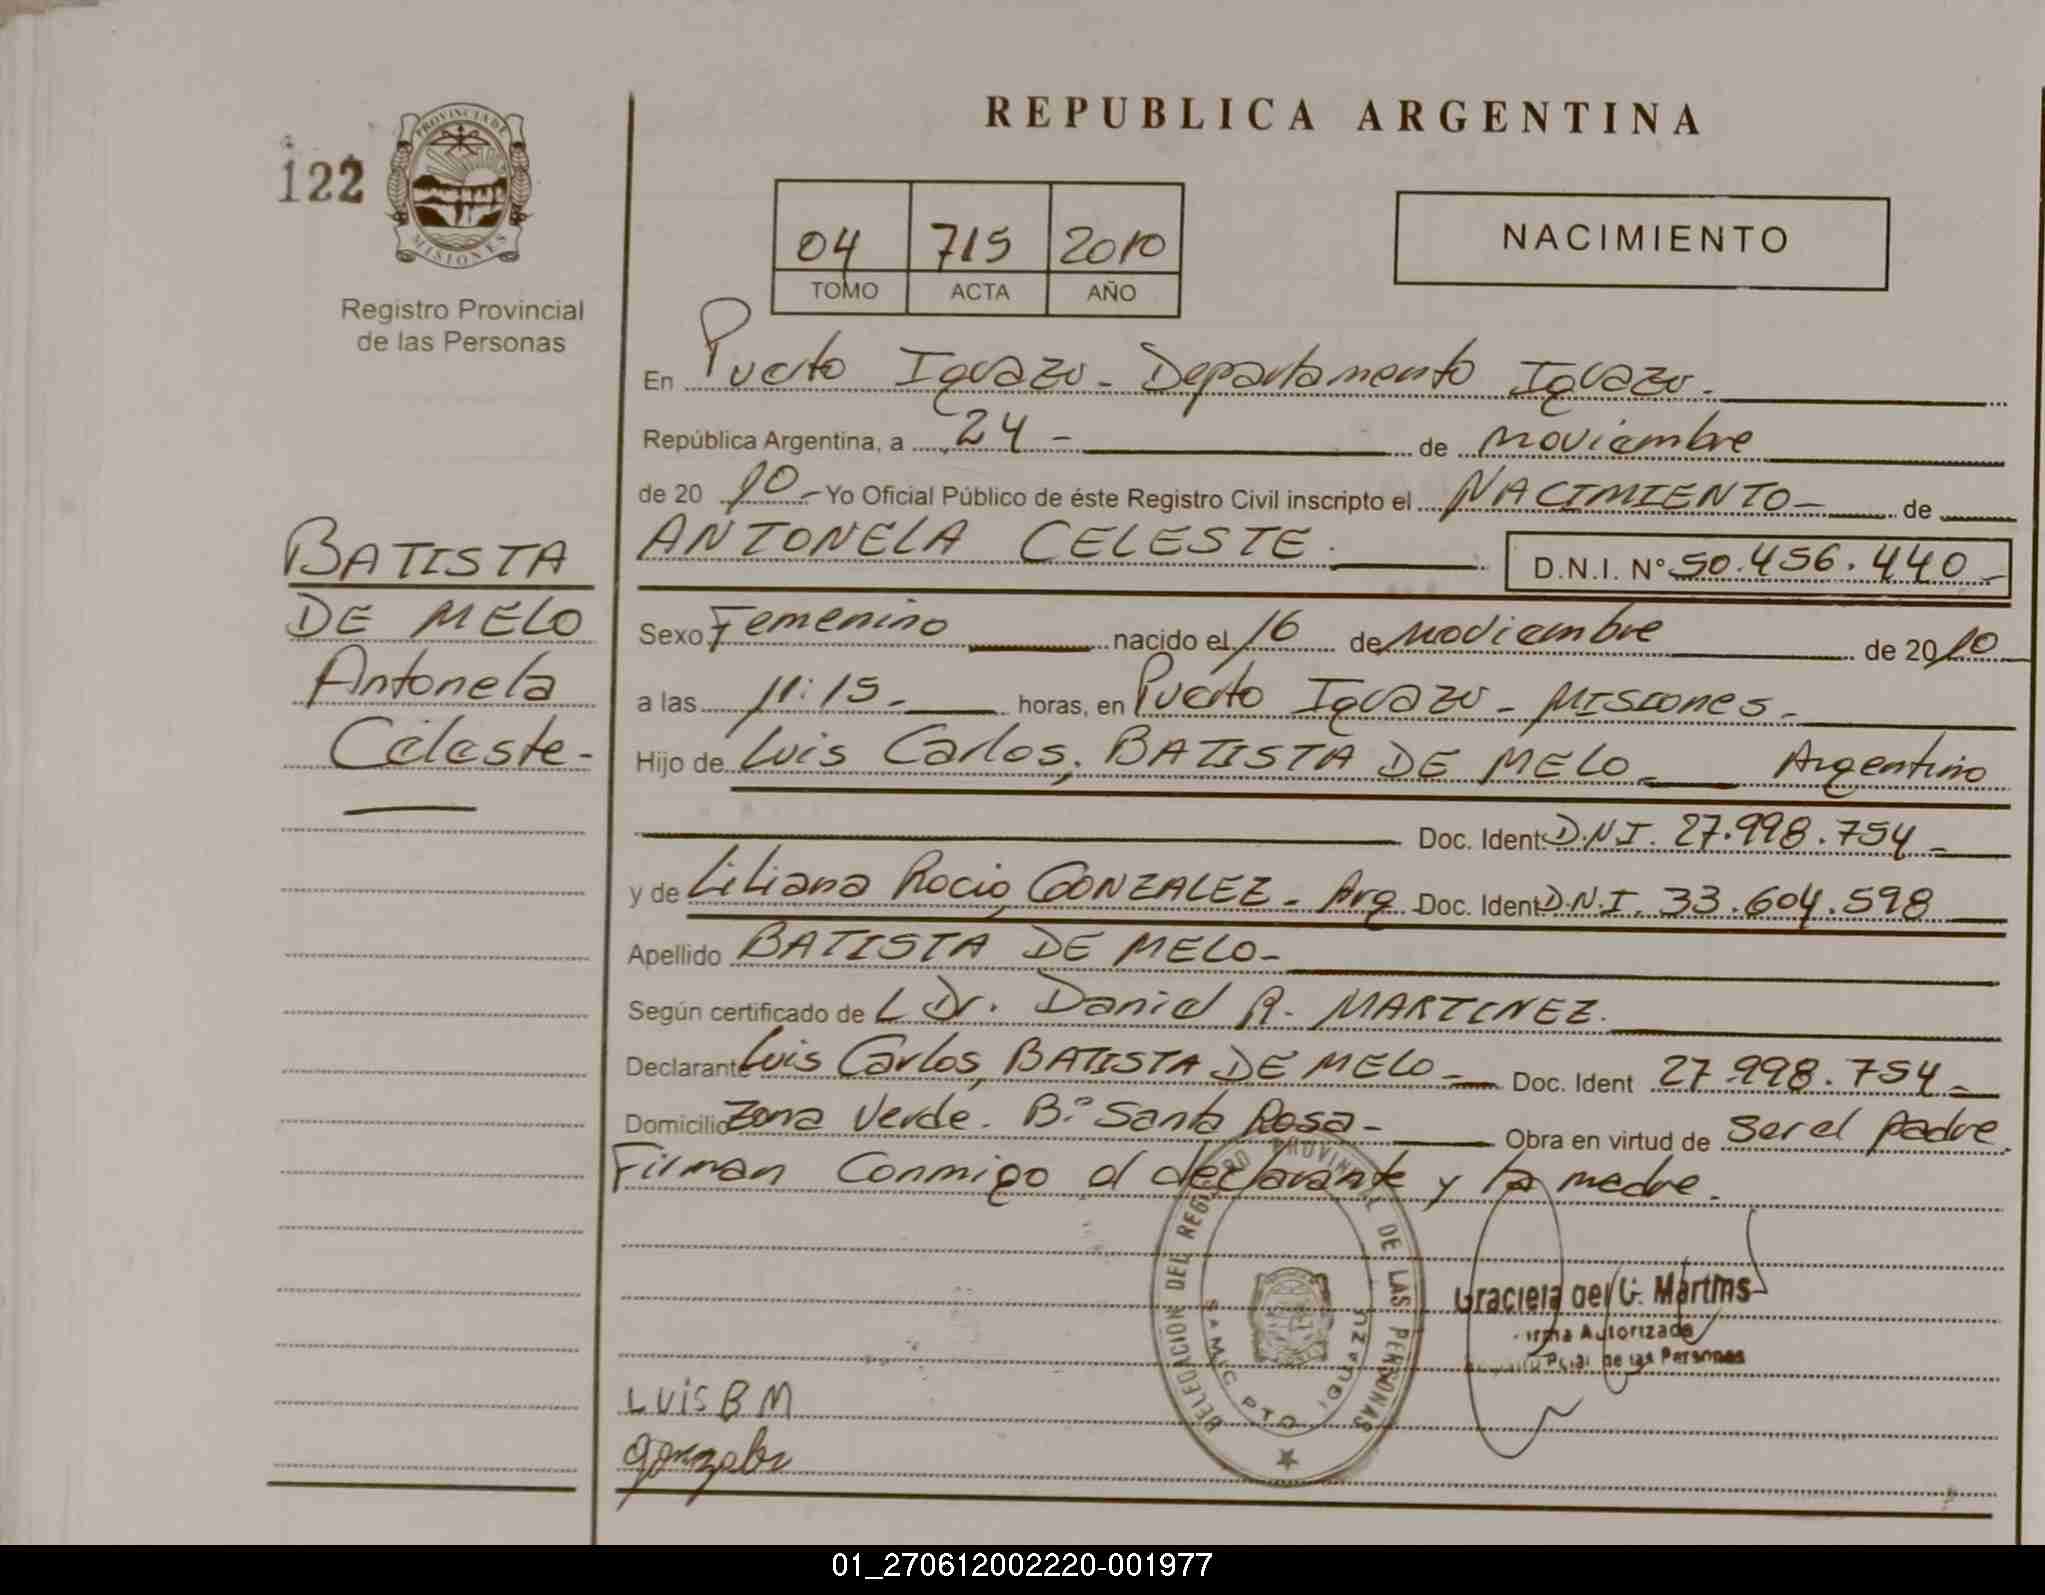 REPUBLICA ARGENTINA
122
PROVINCIA DE
MISIONES
Registro Provincial
de las Personas
04 715 2010
TOMO ACTA AÑO
NACIMIENTO
En Puerto Iguazu - Departamento Iguazu.
República Argentina, a 24 - de noviembre
de 20 10 - Yo Oficial Público de éste Registro Civil inscripto el NACIMIENTO - de
ANTONELA CELESTE. D.N.I. N° 50.456.440 -
BATISTA
DE MELO
Antonela
Celeste -
Sexo Femenino nacido el 16 de noviembre de 20 10
a las 11:15 - horas, en Puerto Iguazu - MISIONES -
Hijo de Luis Carlos, BATISTA DE MELO - Argentino
Doc. Ident. D.N.I. 27.998.754 -
y de Liliana Rocio, GONZALEZ - Arg. Doc. Ident. D.N.I. 33.604.598
Apellido BATISTA DE MELO -
Según certificado de L Dr. Daniel R. MARTINEZ.
Declarante Luis Carlos, BATISTA DE MELO - Doc. Ident 27.998.754 -
Domicilio Zona Verde. B.º Santa Rosa - Obra en virtud de ser el padre.
Firman Conmigo el declarante y la madre.
DELEGACION DEL REGISTRO PROVINCIAL DE LAS PERSONAS
SAMIC PTO IGUAZU
Graciela del C. Martins
Firma Autorizada
Pcial de las Personas
LUIS B M
Gonzalez
01_270612002220-001977